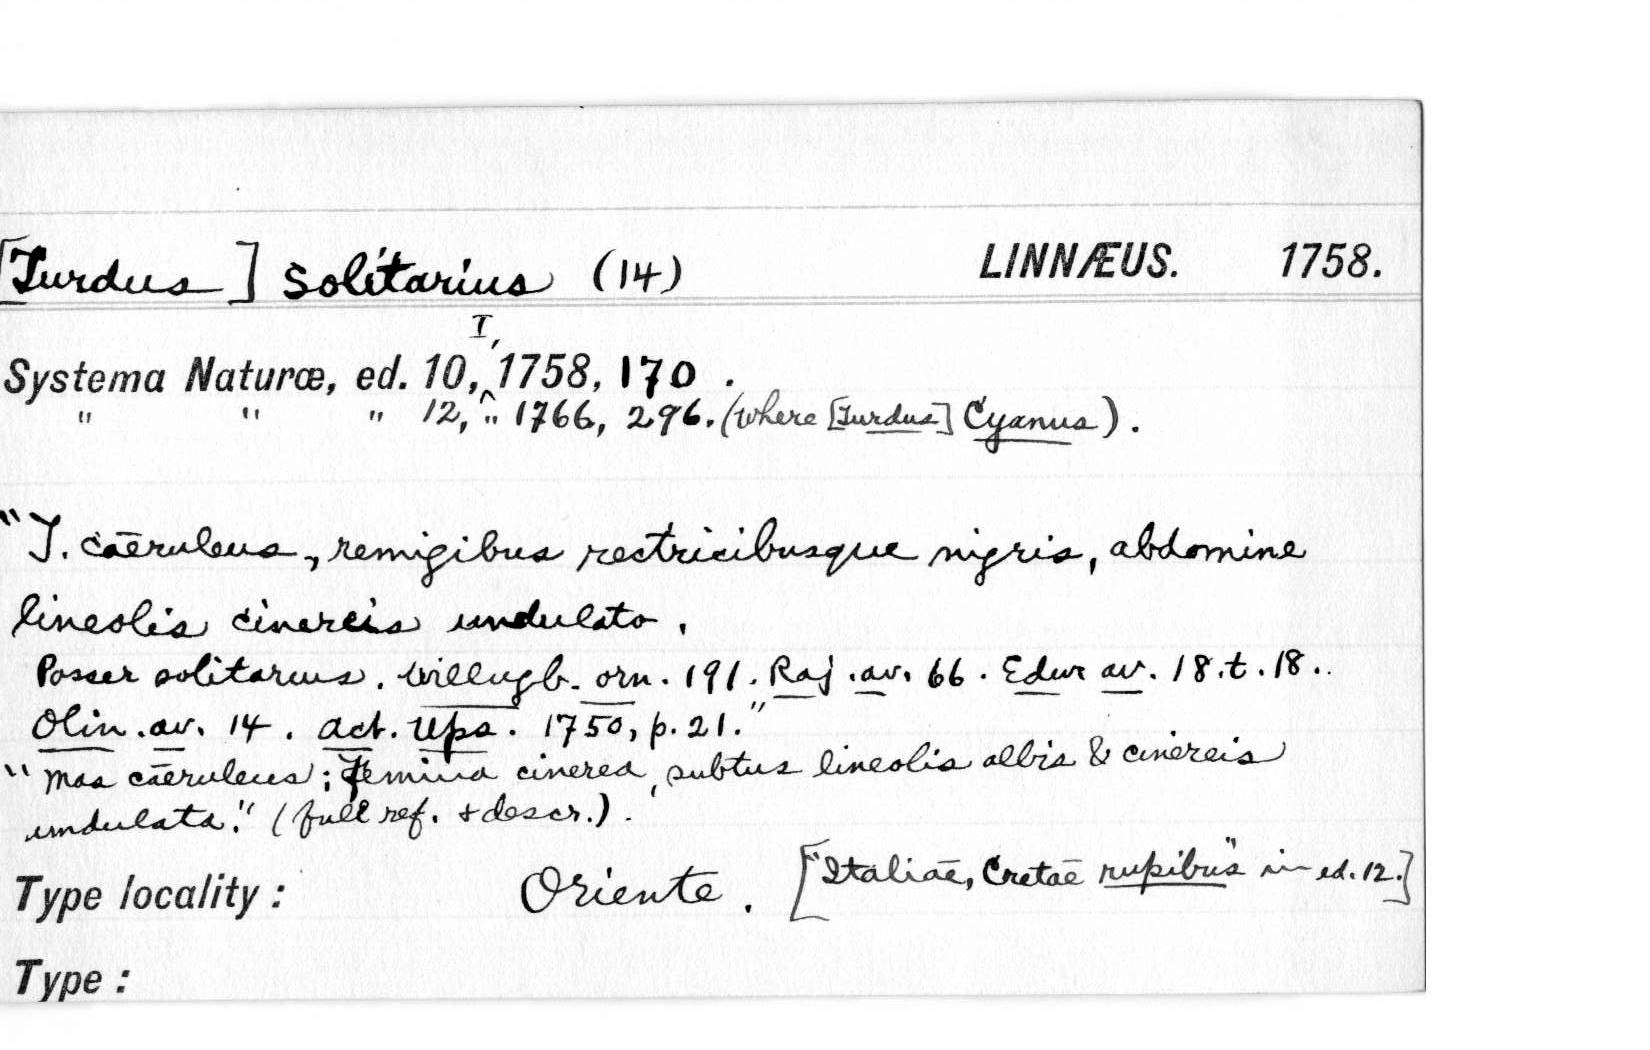 [Turdus] solitarius (14) LINNÆUS. 1758.
I,
Systema Naturæ, ed. 10,^ 1758, 170.
" " " 12, " 1766, 296. (where [Turdus] Cyanus).
"T. cæruleus, remigibus rectricibusque nigris, abdomine
lineolis cinereis undulato.
Passer solitarius. Willugb. orn. 191. Raj. av. 66. Edw av. 18. t. 18..
Olin. av. 14. Act. Ups. 1750, p. 21."
"Mas cæruleus; Femina cinerea, subtus lineolis albis & cinereis
undulata." (full ref. + descr.).
Type locality: Oriente. ["Italiæ, Cretæ rupibus" in ed. 12.]
Type: